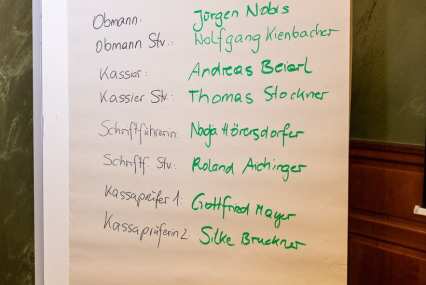 Obmann: Jürgen Nobis
Obmann Stv.: Wolfgang Kienbacher
Kassier: Andreas Beierl
Kassier Stv: Thomas Stockner
Schriftführerin: Nadja Hörersdorfer
Schriftf. Stv: Roland Aichinger
Kassaprüfer 1: Gottfried Mayer
Kassaprüferin 2: Silke Bruckner